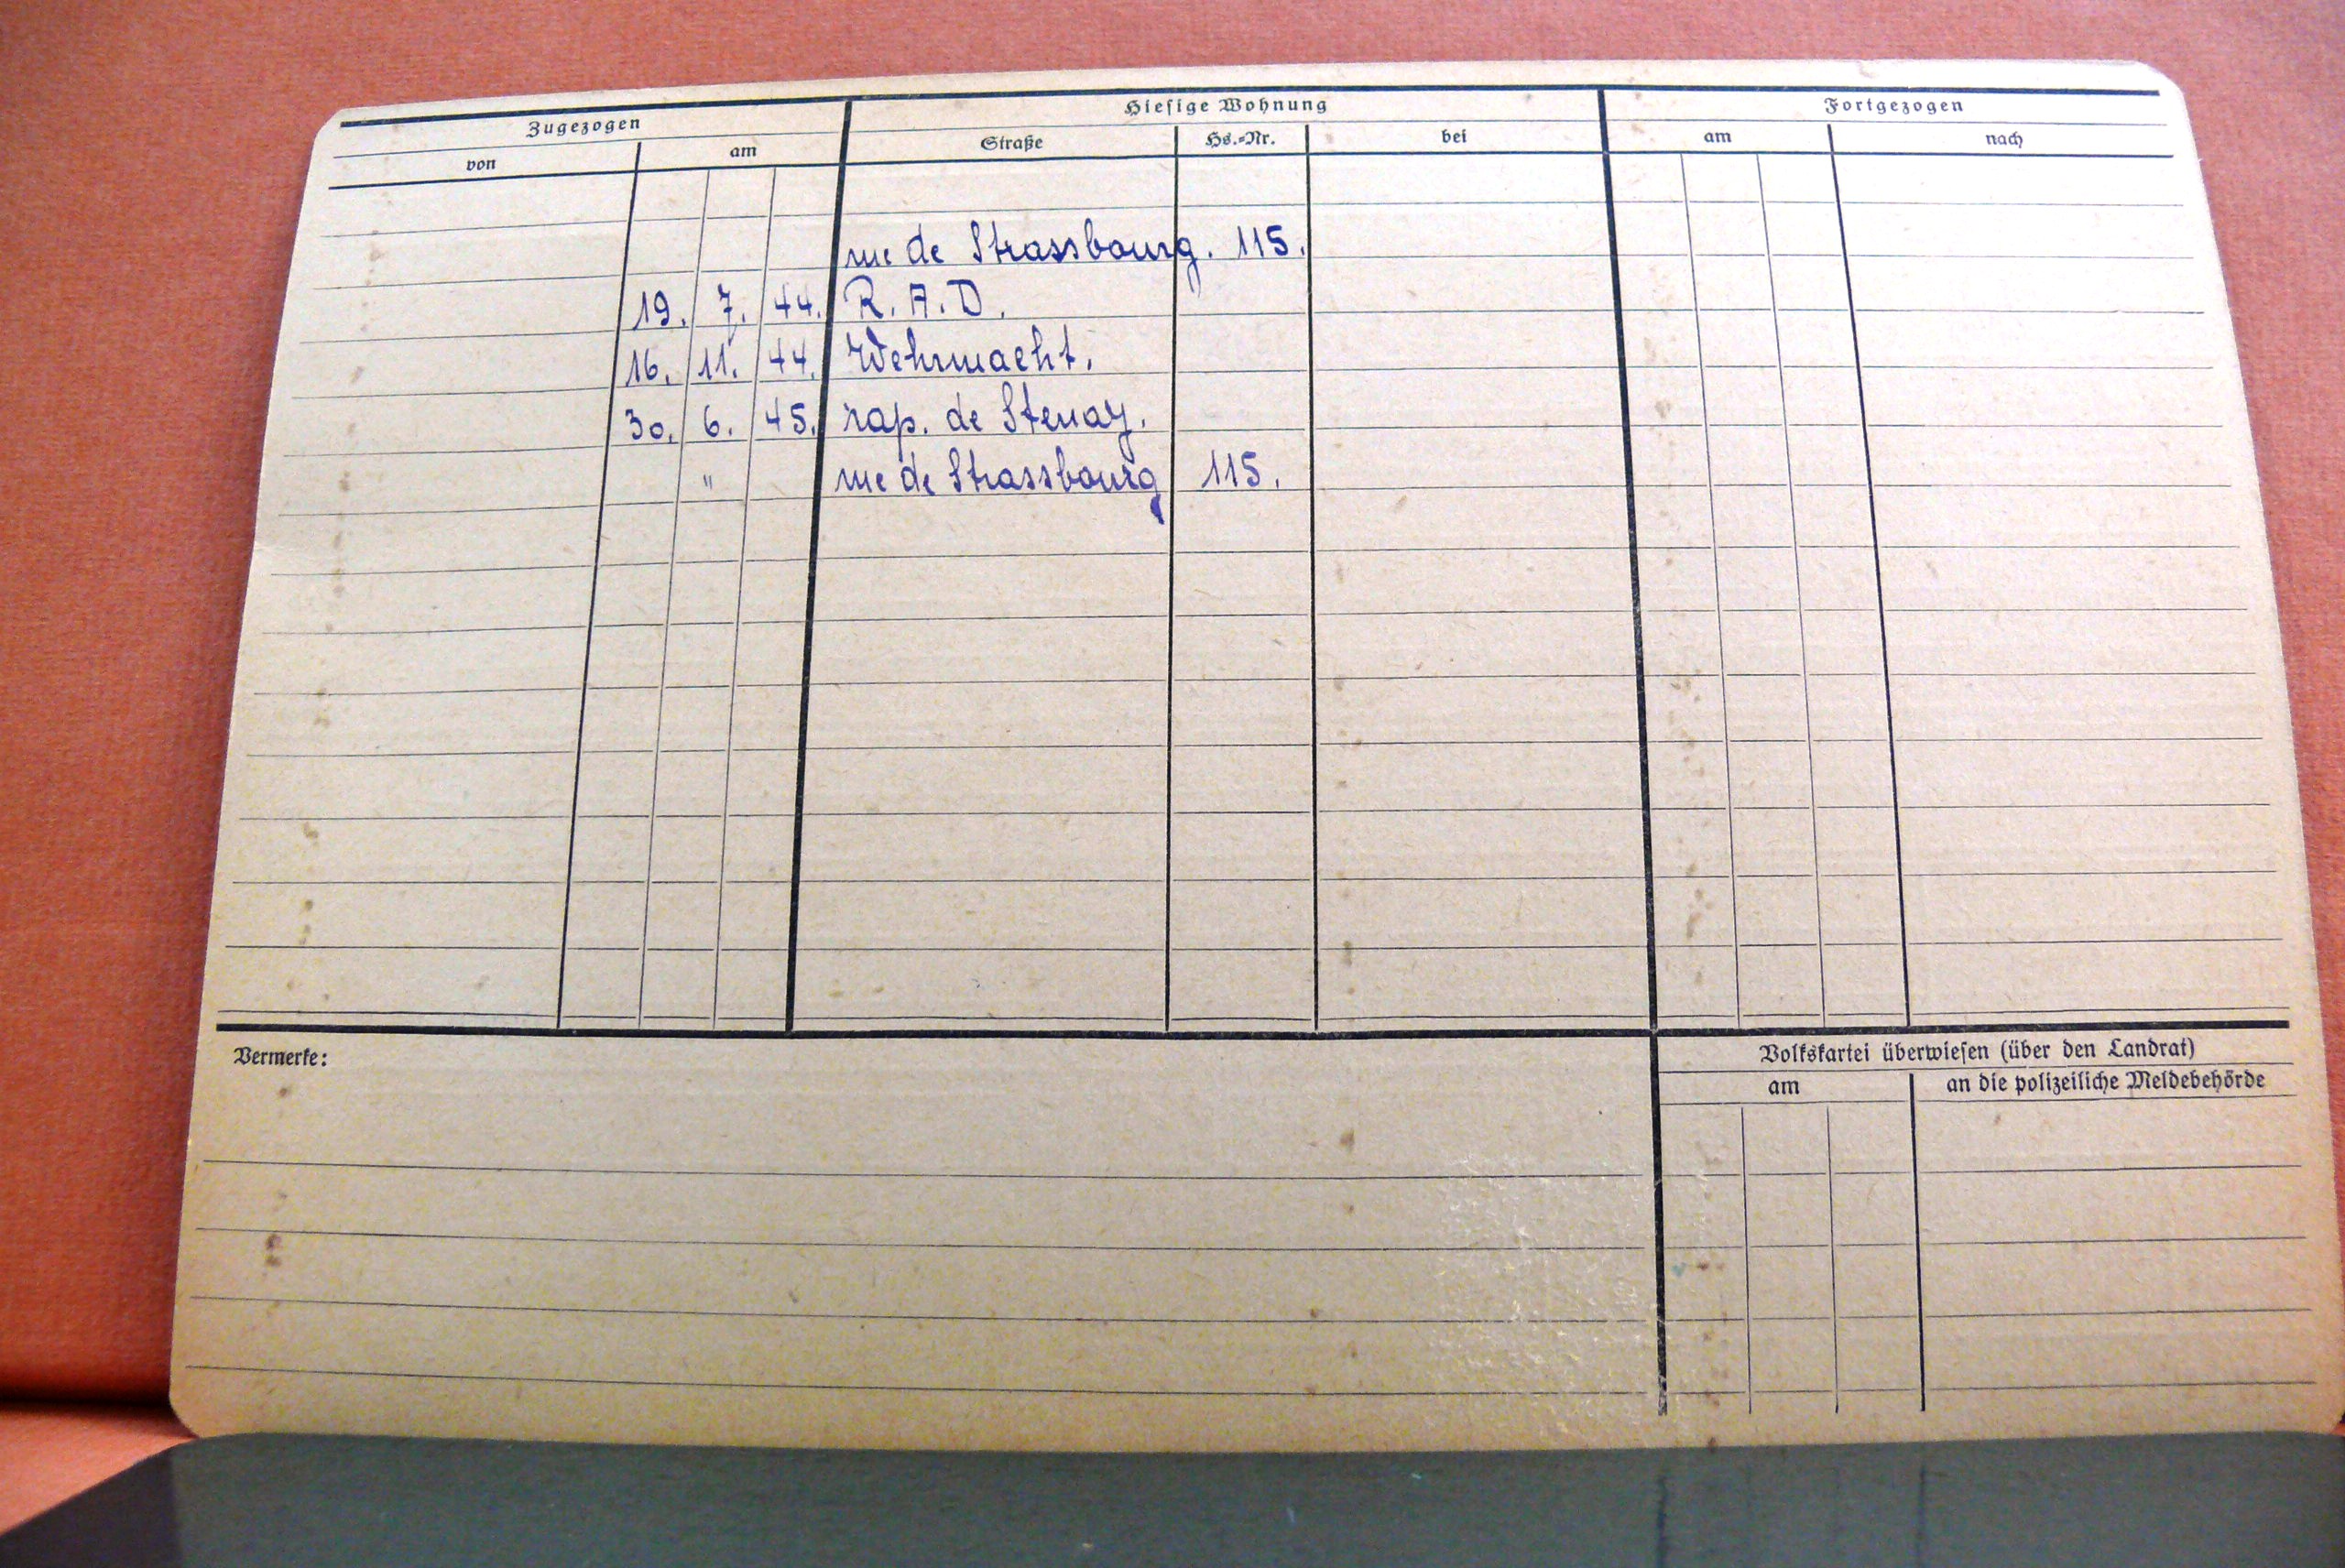 Zugezogen Hiesige Wohnung Fortgezogen
von am Straße Hs.-Nr. bei am nach
rue de Strassbourg. 115.
19. 7. 44. R. A. D.
16. 11. 44. Wehrmacht.
30. 6. 45. rap. de Stenay.
" rue de Strassbourg 115.
Vermerke: Volkskartei überwiesen (über den Landrat)
am an die polizeiliche Meldebehörde